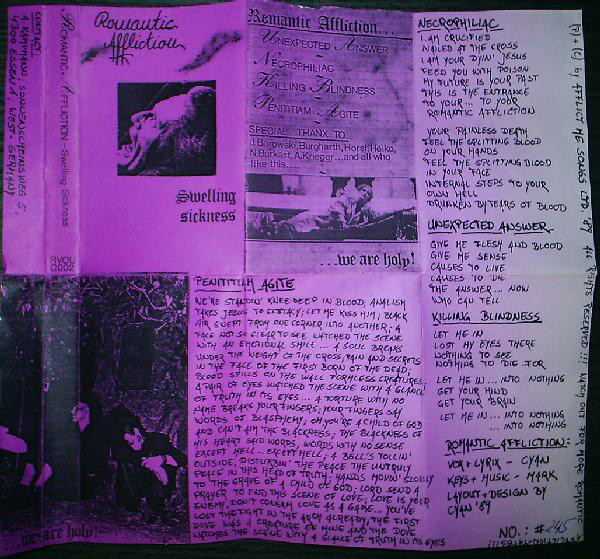 CONTACT:
A. KAMPMANN, SONNENSCHEINSWEG 5,
4300 ESSEN 1, WEST-
GERMANY
ROMANTIC AFFLICTION - Swelling Sickness
RVOU
C002
Romantic
Affliction
Swelling
sickness
Romantic Affliction...
UNEXPECTED ANSWER
NECROPHILIAC
KILLING BLINDNESS
PENITITIAM AGITE
SPECIAL THANX TO..
J.Borowski, Burgharth, Horst, Heiko,
N.Burkart, A.Krieger...and all who
like this....
...we are holy!
NECROPHILIAC
I AM CRUCIFIED
NAILED AT THE CROSS
I AM YOUR DYIN' JESUS
FEED YOU WITH POISON
MY FUTURE IS YOUR PAST
THIS IS THE ENTRANCE
TO YOUR... TO YOUR
ROMANTIC AFFLICTION
YOUR PAINLESS DEATH
FEEL THE SPLITTING BLOOD
ON YOUR HANDS
FEEL THE SPLITTING BLOOD
IN YOUR FACE
INTERNAL STEPS TO YOUR
OWN HELL
DRUNKEN BY TEARS OF BLOOD
UNEXPECTED ANSWER
GIVE ME FLESH AND BLOOD
GIVE ME SENSE
CAUSES TO LIVE
CAUSES TO DIE
THE ANSWER... NOW
WHO CAN TELL
KILLING BLINDNESS
LET ME IN
LOST MY EYES THERE
NOTHING TO SEE
NOTHING TO DIE FOR
LET ME IN... INTO NOTHING
GET YOUR MIND
GET YOUR BRAIN
LET ME IN... INTO NOTHING
... INTO NOTHING
ROMANTIC AFFLICTION:
VOX + LYRIX - CYAN
KEYS + MUSIK - MARK
LAYOUT + DESIGN BY
CYAN '89
NO.: # 245
(P)+(C) by AFFLICT ME SONGS LTD. '89 ALL RIGHTS RESERVED!!! WATCH OUT FOR MORE ROMANTIC
PENITITIUM AGITE
WE'RE STANDIN' KNEE-DEEP IN BLOOD, ANALISM
TAKES JESUS TO EXSTACY; LET ME KISS HIM; BLACK
AIR SWEPT FROM ONE CORNER INTO ANOTHER; A
FACE NOT SO CLEAR TO SEE WATCHED THE SCENE
WITH AN EMOTIONAL SMILE... A SOUL BREAKS
UNDER THE WEIGHT OF THE CROSS, PAIN AND SECRETS
IN THE FACE OF THE FIRST BORN OF THE DEAD;
BLOOD SPILLS ON THE WALL FORMLESS CREATURES,
A PAIR OF EYES WATCHED THE SCENE WITH A GLANCE
OF TRUTH IN ITS EYES... A TORTURE WITH NO
NAME BREAKS YOUR FINGERS; YOUR FINGERS SAY
WORDS OF BLASPHEMY; OH YOU'RE A CHILD OF GOD
AND CAN'T AIM THE BLACKNESS; THE BLACKNESS OF
HIS HEART SAID WORDS, WORDS WITH NO SENSE
EXCEPT HELL... EXCEPT HELL; A BELL'S TOLLIN'
OUTSIDE, DISTURBIN' THE PEACE THE UNTRULY
PEACE IN THIS HEAD OF TRUTH; HANDS MOVIN' SLOWLY
TO THE GRAVE OF A CHILD OF GOD; LORD SEND A
PRAYER TO END THIS SCENE OF LOVE; LOVE IS YOUR
ENEMY DON'T CONSERV LOVE AS A GAPE... YOU'VE
LOST THE FIGHT IN THE ARCH ALREADY, THE FIRST
DOVE WAS A CREATURE OF MINE AND THE DOVE
WATCHES THE SCENE WITH A GLANCE OF TRUTH IN ITS EYES
...we are holy!